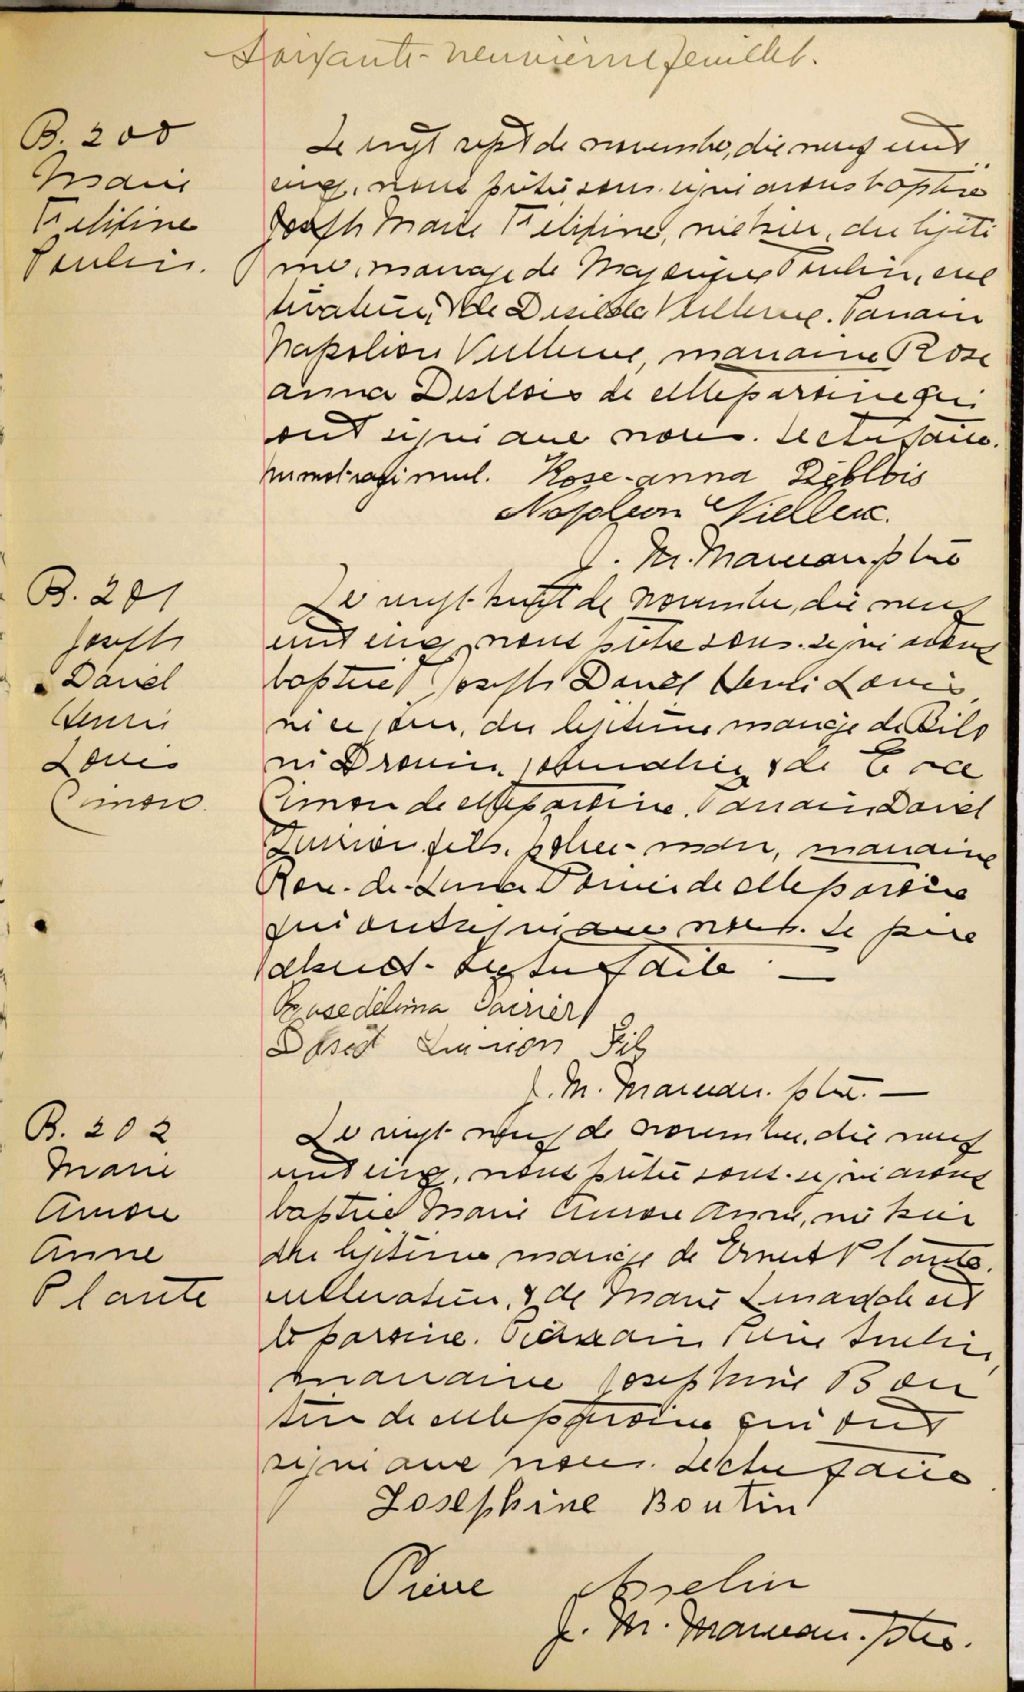 Soixante-neuvième feuillet.
B. 200
Marie
Philipine
Poulin.
Le vingt sept de novembre, dix neuf cent
cinq, nous prêtre sous-signé avons baptisé
Marie Philipine, née hier, du légiti
me mariage de Poulin, cul
tivateur, & de Veilleux. Parrain
Napoléon Veilleux, marraine Rose
anna Deblois de cette paroisse qui
ont signé avec nous. Lecture faite.
un mot rayé nul. Rose-anna Déblois
Napoléon Vielleux.
J. M. Marceau ptre
B. 201
Joseph
David
Henri
Louis
Cimon
Le vingt-huit de novembre, dix neuf
cent cinq, nous prêtre sous-signé avons
baptisé Joseph David Henri Louis,
né ce jour, du légitime mariage de
Drouin, journalier & de
Cimon de cette paroisse. Parrain David
fils, police-man, marraine
Rose-de-Lima Poirier de cette paroisse
qui ont signé avec nous. Le père
absent. Lecture faite.
Rosedelima Poirier
David Fils
J. M. Marceau. ptre.
B. 202
Marie
Aurore
Anne
Plante
Le vingt-neuf de novembre, dix neuf
cent cinq, nous prêtre sous-signé avons
baptisé Marie Aurore Anne, née hier
du légitime mariage de Ernest Plante,
cultivateur, & de Marie de cet
te paroisse. Parrain Pierre
marraine Josephine Bou
tin de cette paroisse qui ont
signé avec nous. Lecture faite
Josephine Boutin
Pierre Asselin
J. M. Marceau. ptre.